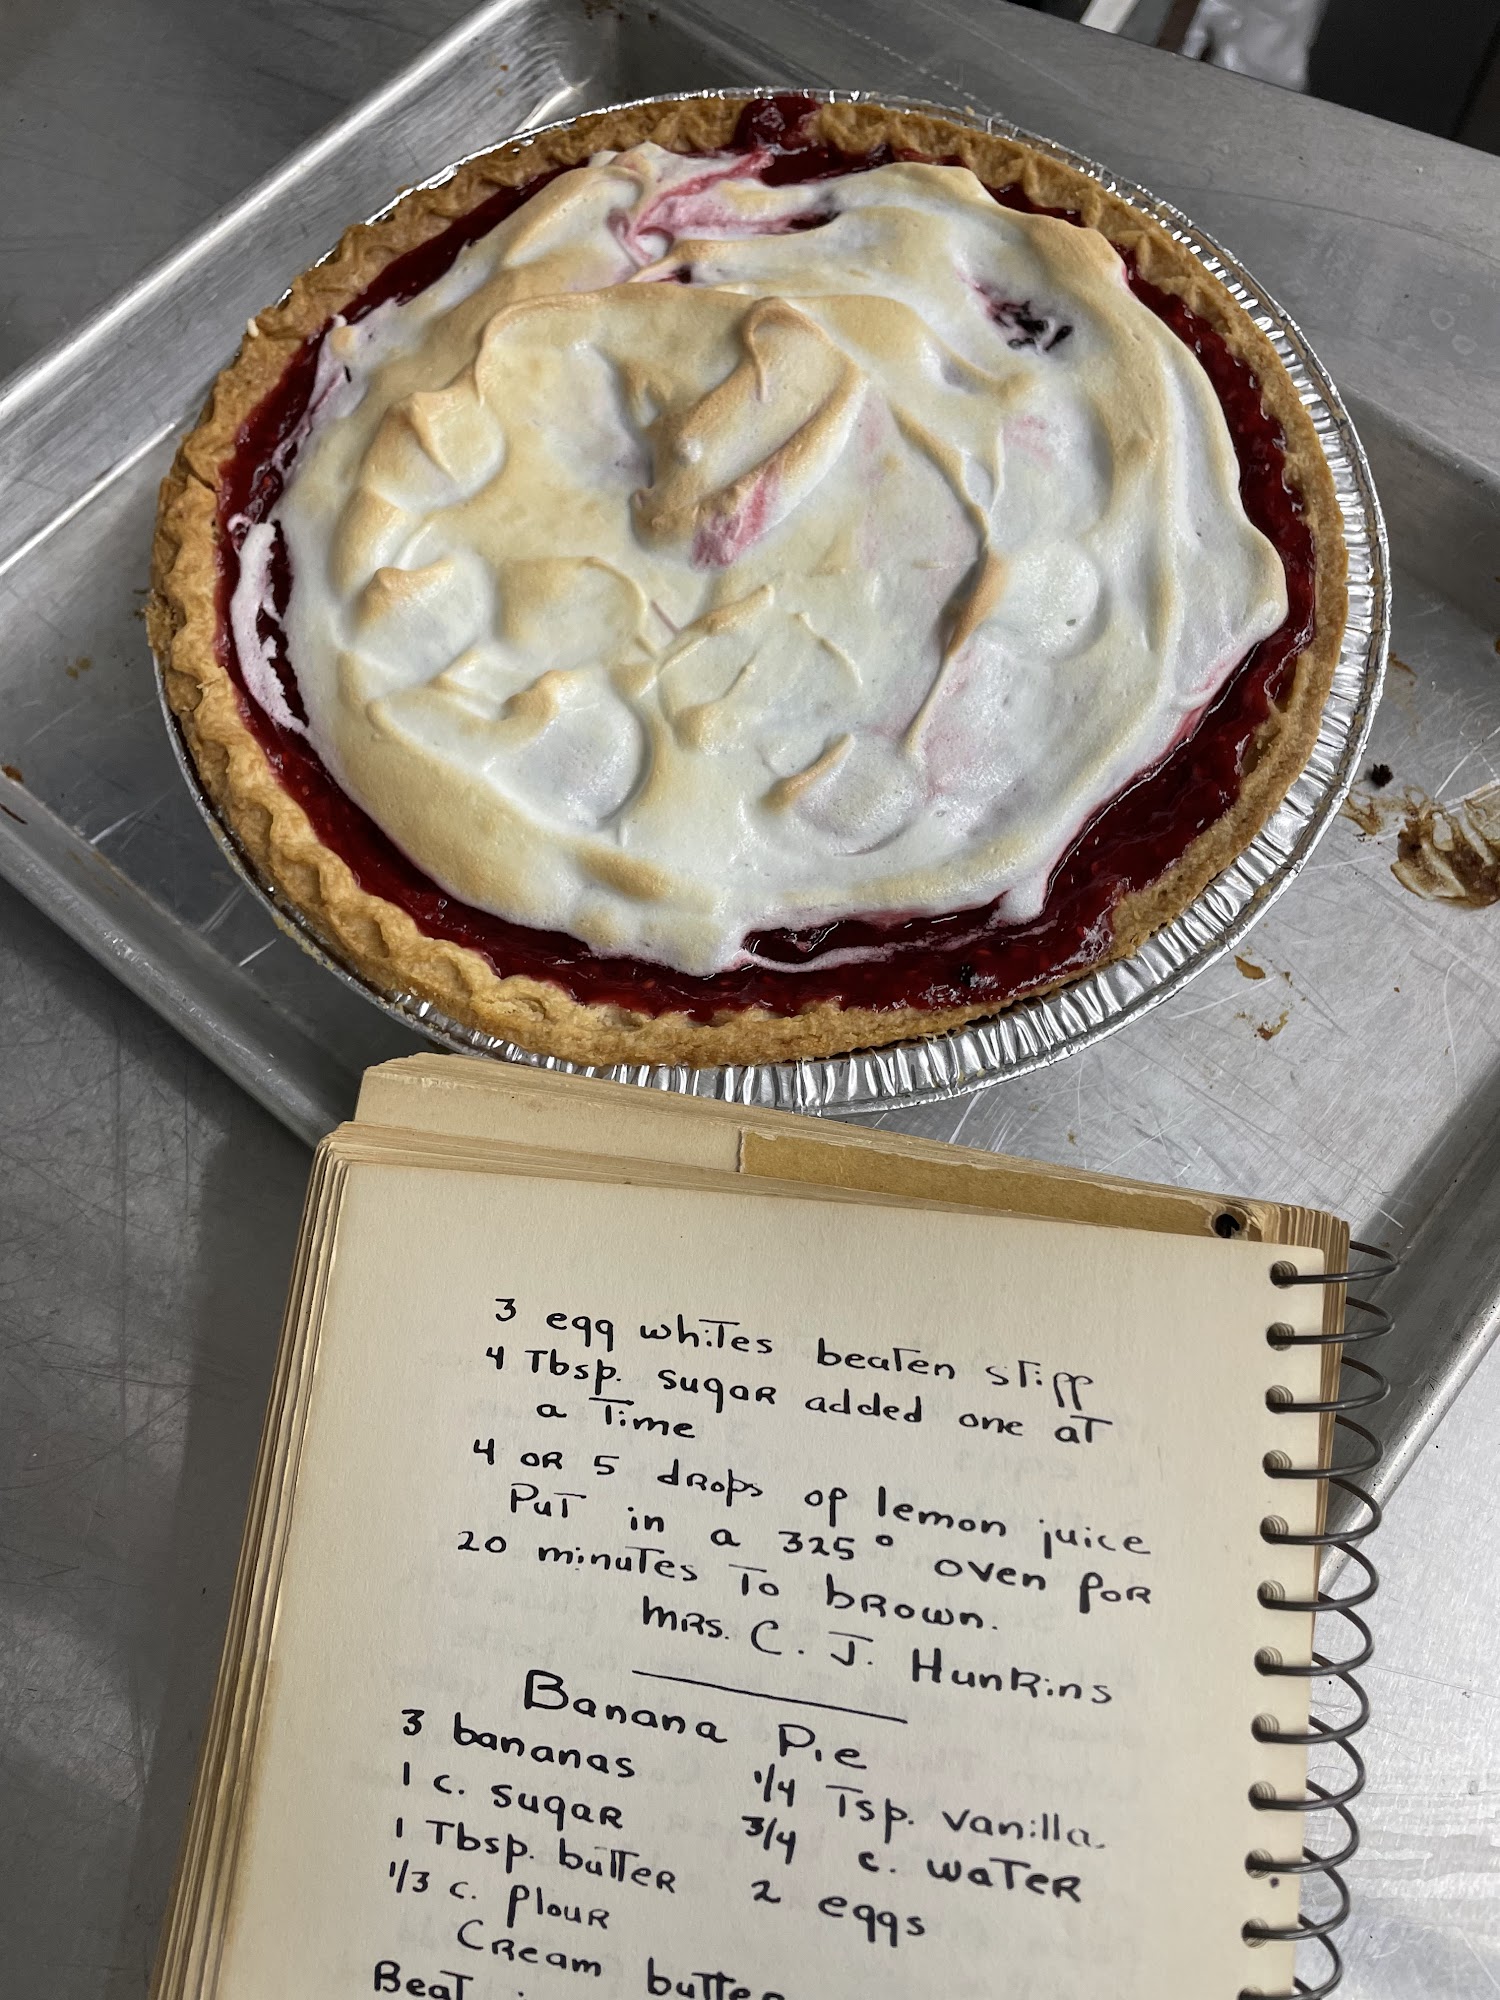 3 egg whites beaten stiff
4 Tbsp. sugar added one at
a Time
4 or 5 drops of lemon juice
Put in a 325° oven for
20 minutes To brown.
Mrs. C. J. Hunkins
Banana Pie
3 bananas 1/4 Tsp. vanilla.
1 c. sugar 3/4 c. water
1 Tbsp. butter 2 eggs
1/3 c. flour
Cream
Beat